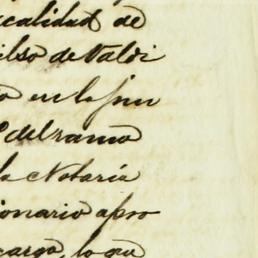 calidad de
de Valdi
o en la
del ramo
la Notaría
ionario apro
cargo, lo que